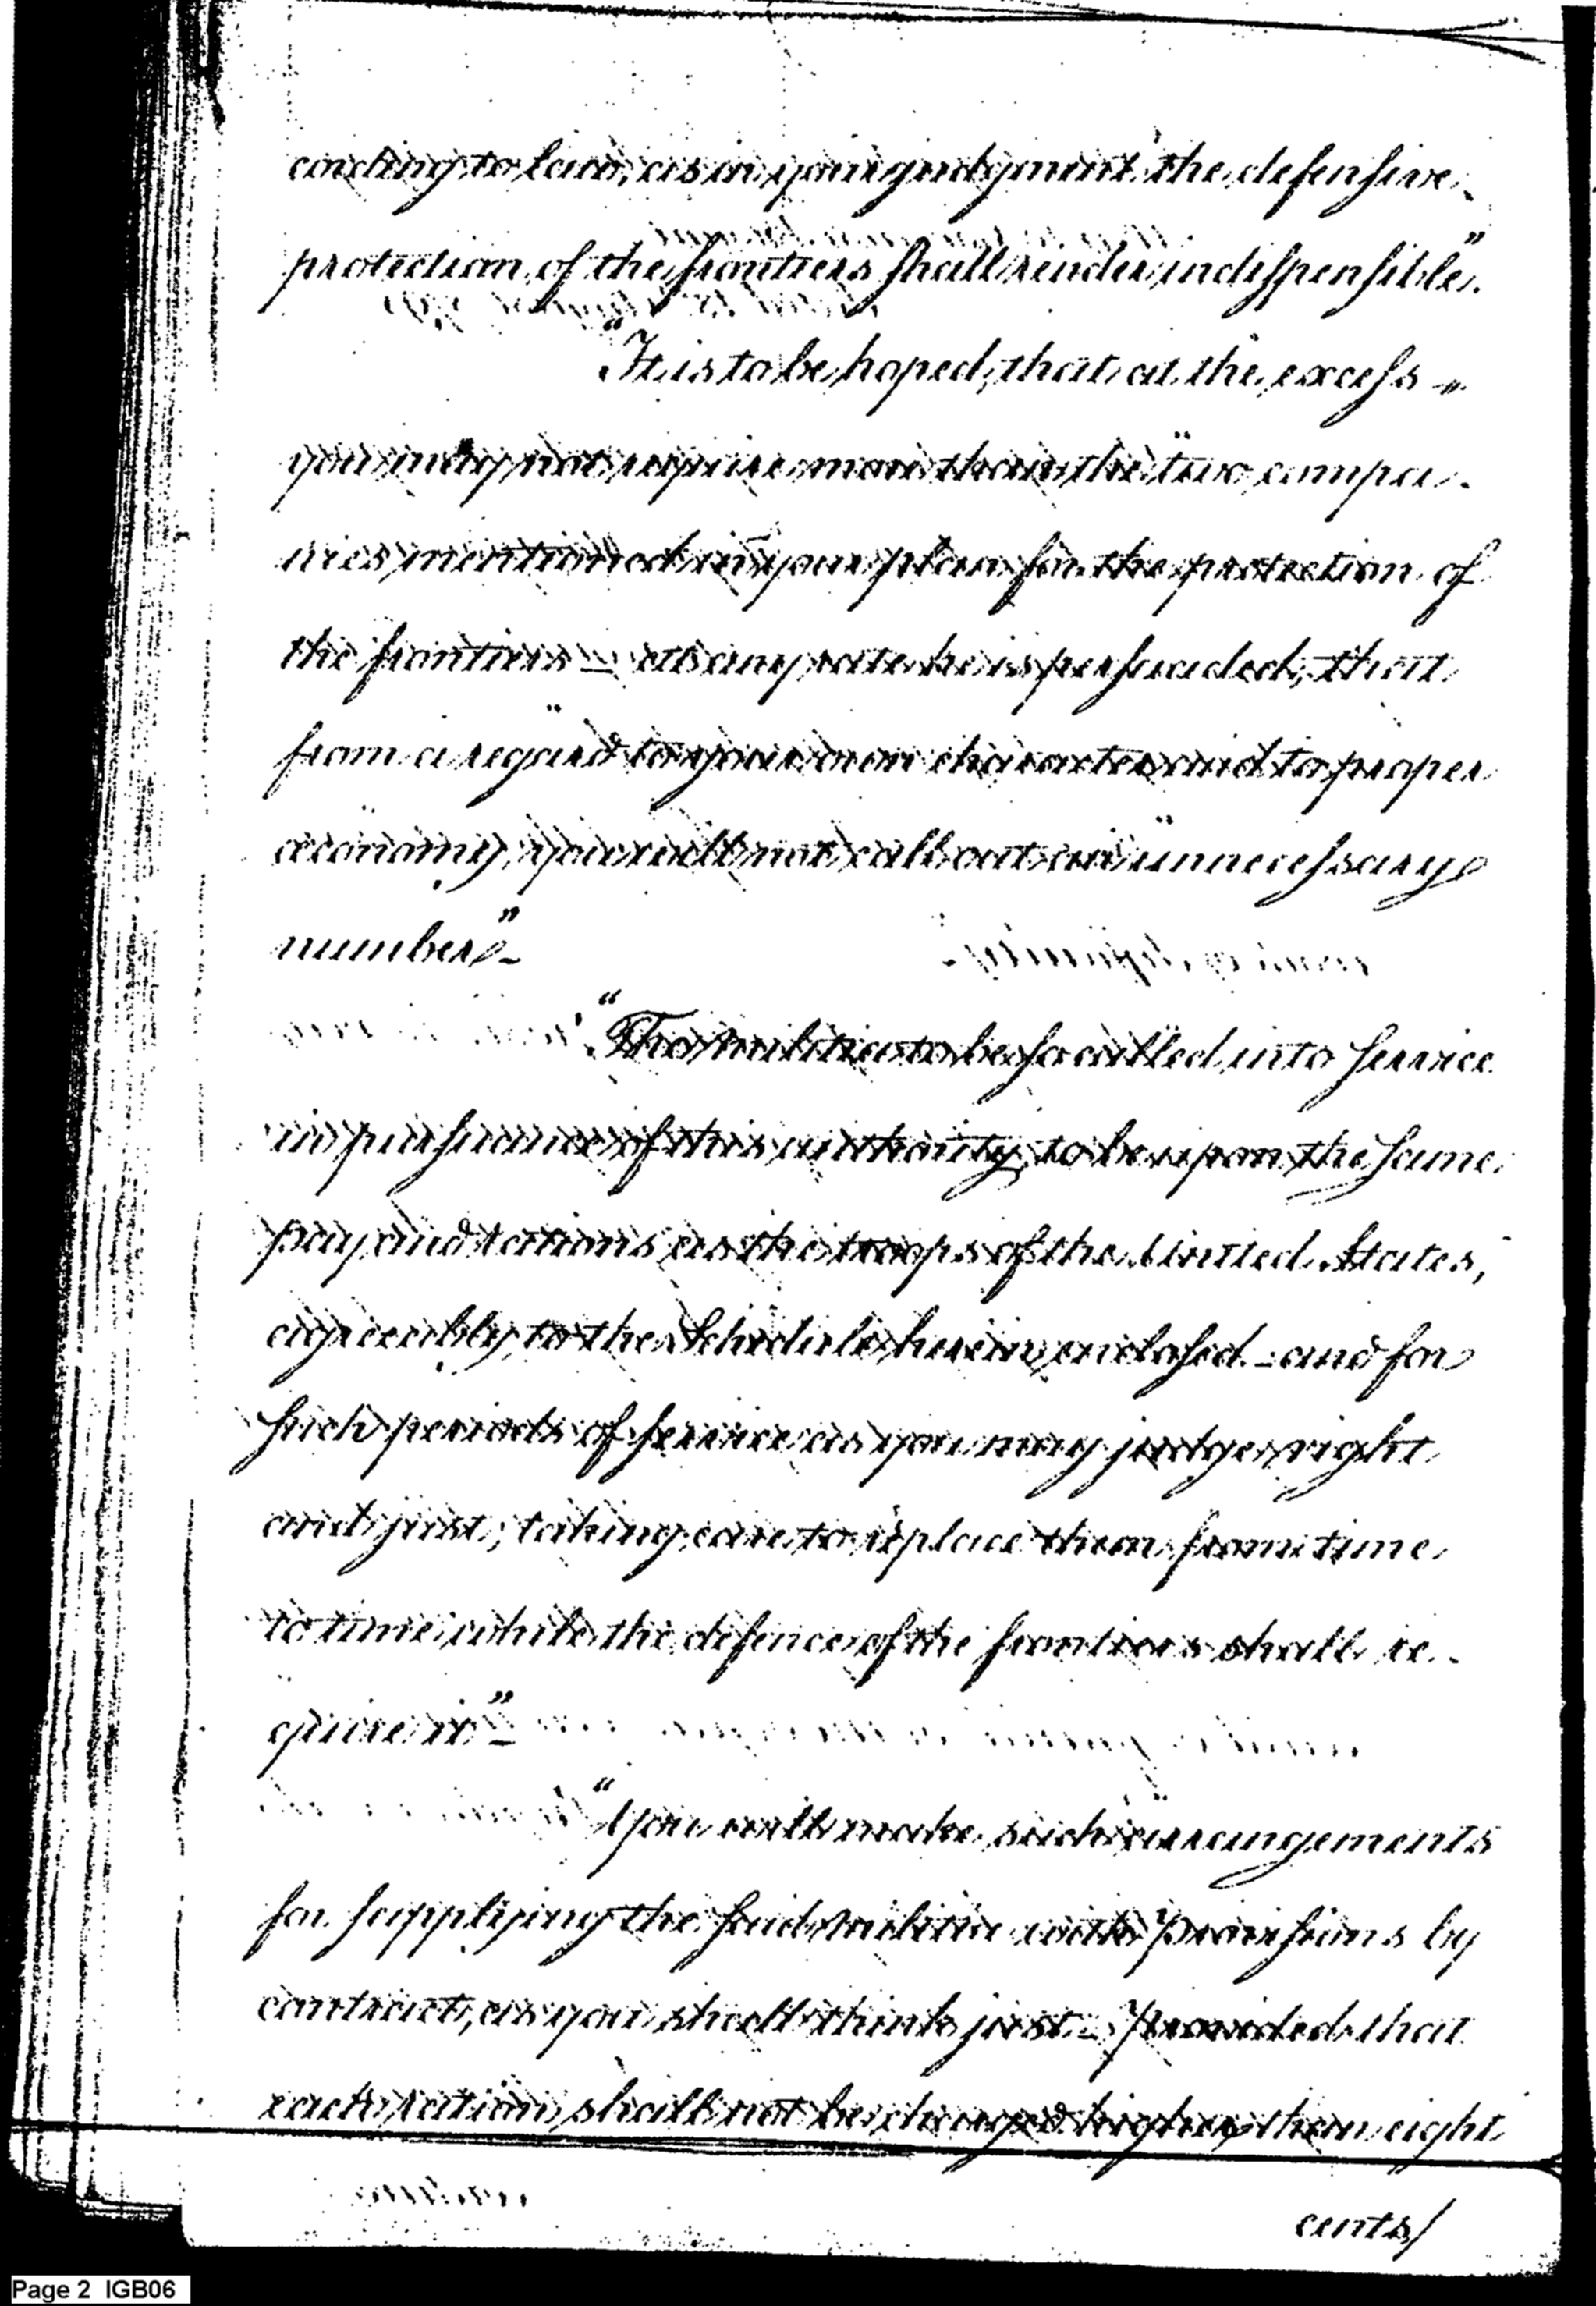 cording to law, as in your judgment the defensive
protection of the frontiers shall render indispensible".
"It is to be hoped, that at the excess
you may not require more than the two compa-
nies mentioned in your plan for the protection of
the frontiers — at any rate he is persuaded, that
from a regard to your own character and to proper
œconomy, you will not call out an unnecessary
number"-
"The militia to be so called into service
in pursuance of this authority, to be upon the same
pay and rations as the troops of the United States,
agreeably to the Schedule herein enclosed - and for
such periods of service as you may judge right
and just; taking care to replace them from time
to time while the defence of the frontiers shall re-
quire it"-
"You will make such arrangements
for supplying the said militia with Provisions by
contract, as you shall think just - Provided that
each ration shall not be charged higher than eight
cents/
Page 2 IGB06